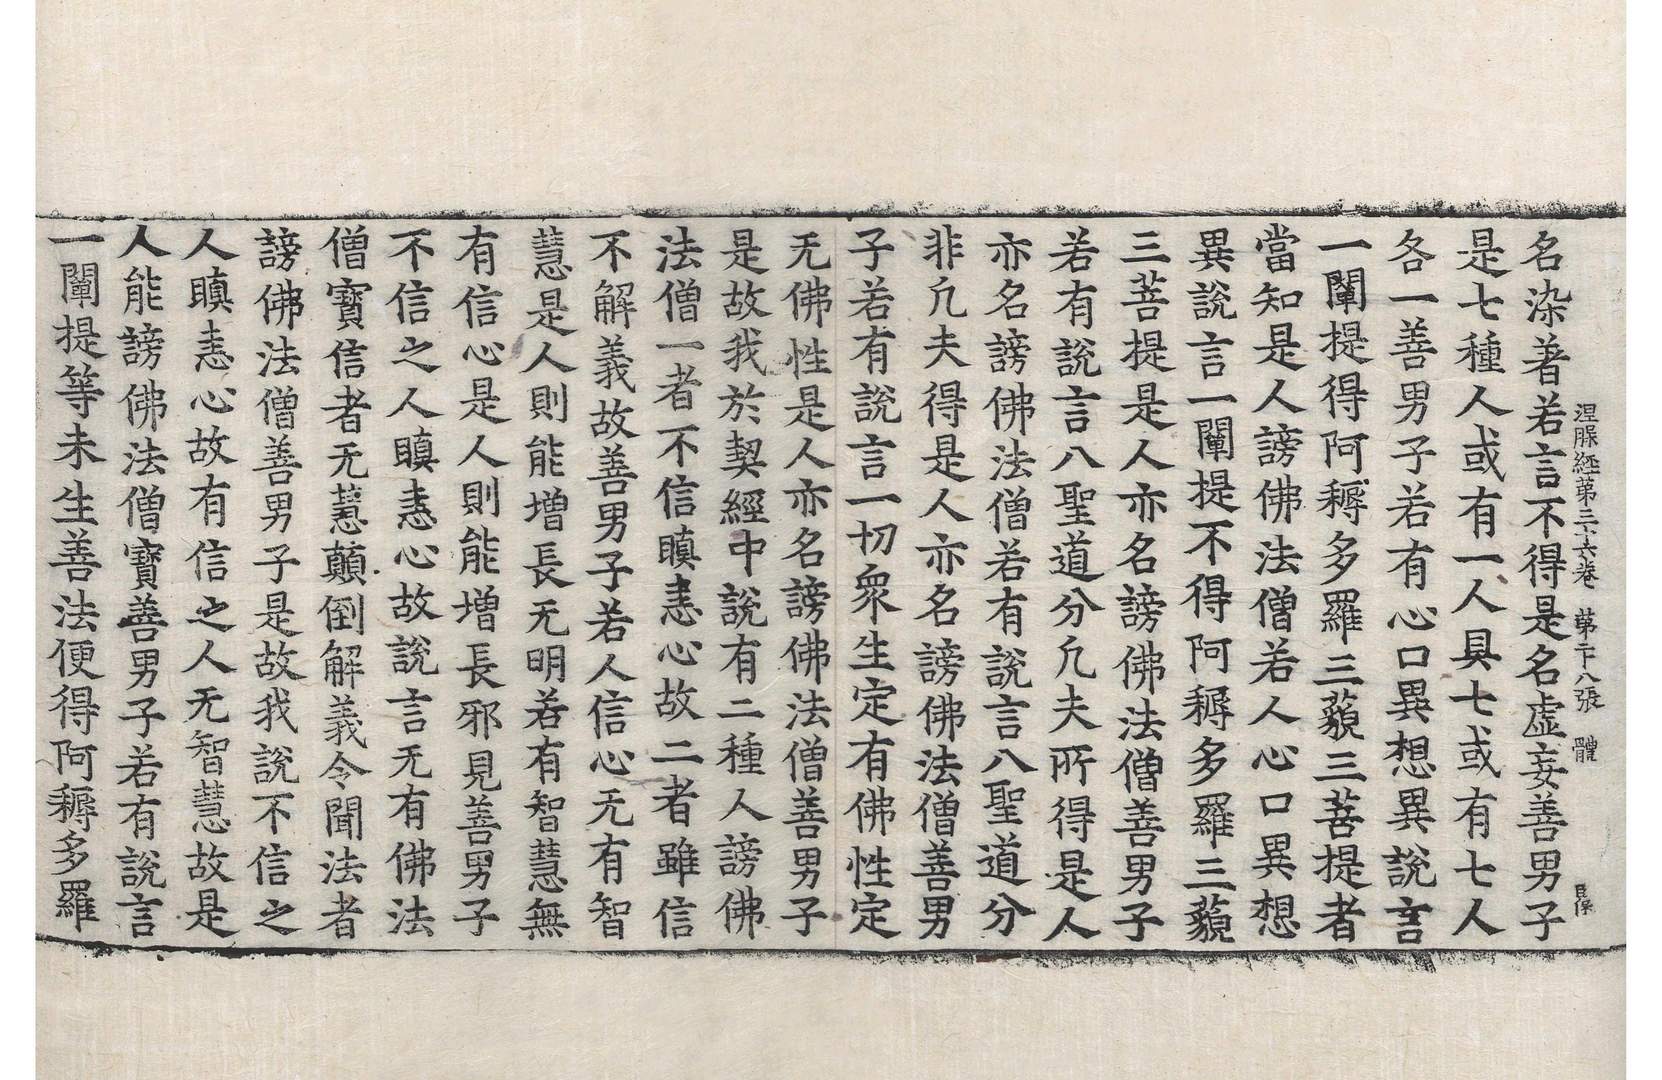 涅槃經第三十六卷 第二十八張 體
名染著若言不得是名虛妄善男子
是七種人或有一人具七或有七人
各一善男子若有心口異想異說言
一闡提得阿耨多羅三藐三菩提者
當知是人謗佛法僧若人心口異想
異說言一闡提不得阿耨多羅三藐
三菩提是人亦名謗佛法僧善男子
若有說言八聖道分凡夫所得是人
亦名謗佛法僧若有說言八聖道分
非凡夫得是人亦名謗佛法僧善男
子若有說言一切衆生定有佛性定
无佛性是人亦名謗佛法僧善男子
是故我於契經中說有二種人謗佛
法僧一者不信瞋恚心故二者雖信
不解義故善男子若人信心无有智
慧是人則能增長无明若有智慧無
有信心是人則能增長邪見善男子
不信之人瞋恚心故說言无有佛法
僧寶信者无慧顛倒解義令聞法者
謗佛法僧善男子是故我說不信之
人瞋恚心故有信之人无智慧故是
人能謗佛法僧寶善男子若有說言
一闡提等未生善法便得阿耨多羅